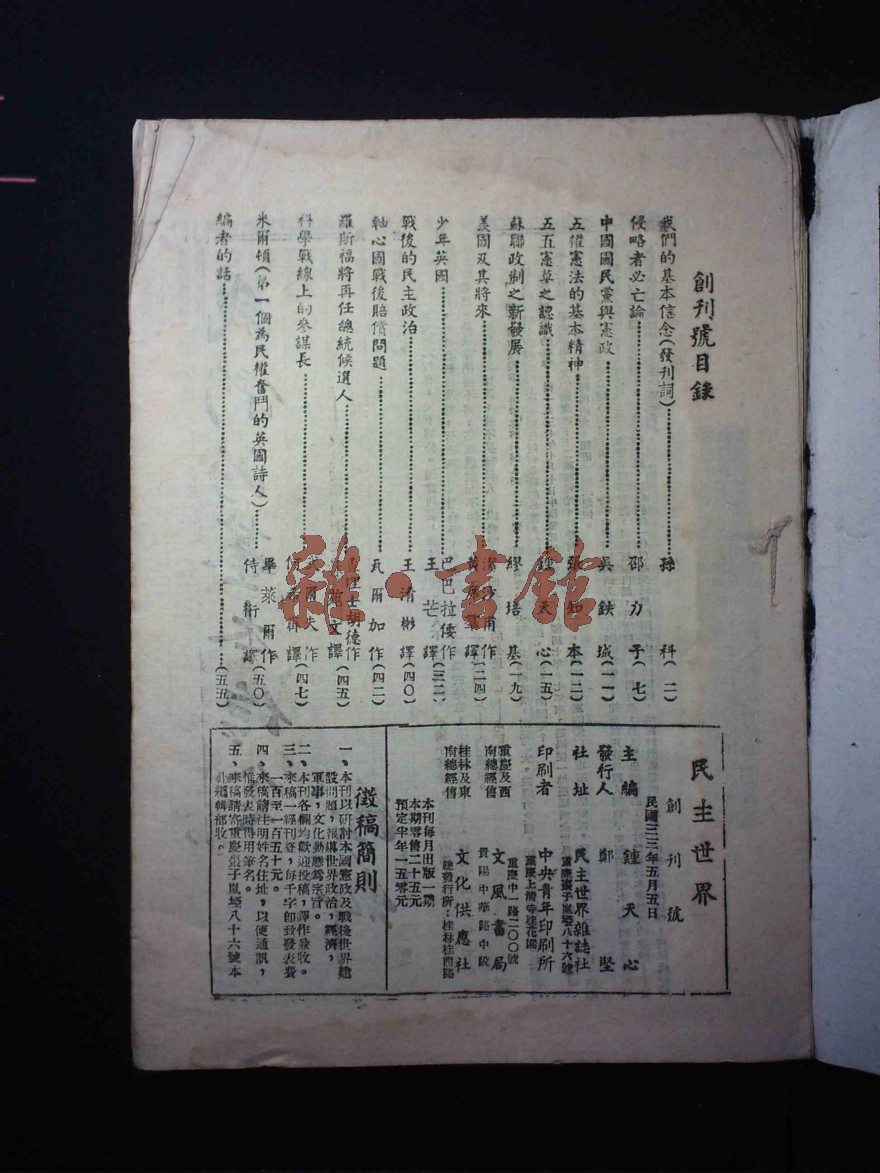 創刊號目錄
我們的基本信念(發刊詞)……孫 科(二)
侵略者必亡論……邵力子(七)
中國國民黨與憲政……吳鉄城(一一)
五權憲法的基本精神……張知本(一二)
五五憲草之認識……鍾天心(一五)
蘇聯政制之新發展……繆培基(一九)
美國及其將來……作 譯(二四)
少年英國……巴巴拉倭作 王芒譯(三二)
戰後的民主政治……王清彬譯(四〇)
軸心國戰後賠償問題……瓦爾加作(四二)
羅斯福將再任總統候選人……胡德作 文譯(四五)
科學戰線上的參謀長……夫作 譯(四七)
米爾頓(第一個為民權奮鬥的英國詩人)……畢萊爾作 侍衍譯(五〇)
編者的話……(五五)
民主世界
創刊號
民國三三年五月五日
主編 鍾天心
發行人 鄭堅
社址 民主世界雜誌社
重慶棗子嵐埡八十六號
印刷者 中央青年印刷所
重慶上清寺桂花園
重慶及西南總經售 文風書局
重慶中一路二〇〇號
貴陽中華路中段
桂林及東南總經售 文化供應社
總發行所:桂林桂西路
本刊每月出版一期
本期零售二十五元
預定半年一五零元
徵稿簡則
一、本刊以研討本國憲政及戰後世界建
設問題,報導世界政治,經濟,
軍事,文化動態為宗旨。
二、本刊各欄均歡迎投稿,譯作兼收。
三、來稿一經刊登,每千字卽致發表費
一百至一百五十元。
四、來稿請注明姓名住址,以便通訊,
惟發表時得用筆名。
五、來稿請寄重慶棗子嵐埡八十六號本
社編輯部收。
雜·書館